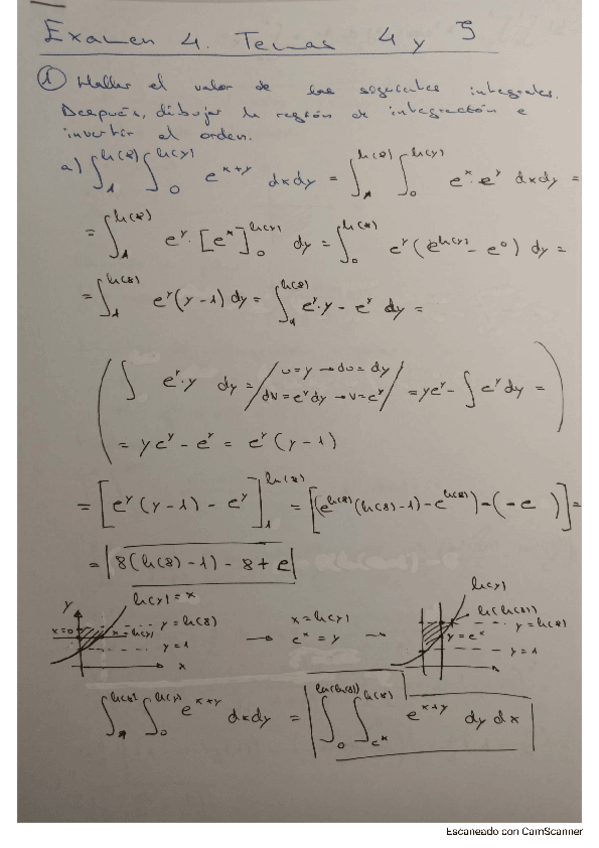 Examen 4. Temas 4 y 5
① Hallar el valor de las siguientes integrales.
Después, dibujar la región de integración e
invertir el orden.
a) ∫₁^{ln(8)} ∫₀^{ln(y)} e^{x+y} dxdy = ∫₁^{ln(8)} ∫₀^{ln(y)} e^x · e^y dxdy =
= ∫₁^{ln(8)} e^y · [e^x]₀^{ln(y)} dy = ∫₀^{ln(8)} e^y (e^{ln(y)} - e^0) dy =
= ∫₁^{ln(8)} e^y (y-1) dy = ∫₁^{ln(8)} e^y · y - e^y dy =
( ∫ e^y · y dy = / u=y → du=dy / dv=e^y dy → v=e^y / = ye^y - ∫ e^y dy =
= ye^y - e^y = e^y (y-1) )
= [e^y (y-1) - e^y]₁^{ln(8)} = [(e^{ln(8)} (ln(8)-1) - e^{ln(8)}) - (-e)] =
= 8(ln(8)-1) - 8 + e
y ln(y)=x y=ln(8) x=0 x=ln(y) y=1 x
→ x=ln(y) e^x=y →
ln(y) ln(ln(8)) y=ln(8) y=e^x y=1
∫₁^{ln(8)} ∫₀^{ln(y)} e^{x+y} dxdy = ∫₀^{ln(ln(8))} ∫_{e^x}^{ln(8)} e^{x+y} dy dx
Escaneado con CamScanner